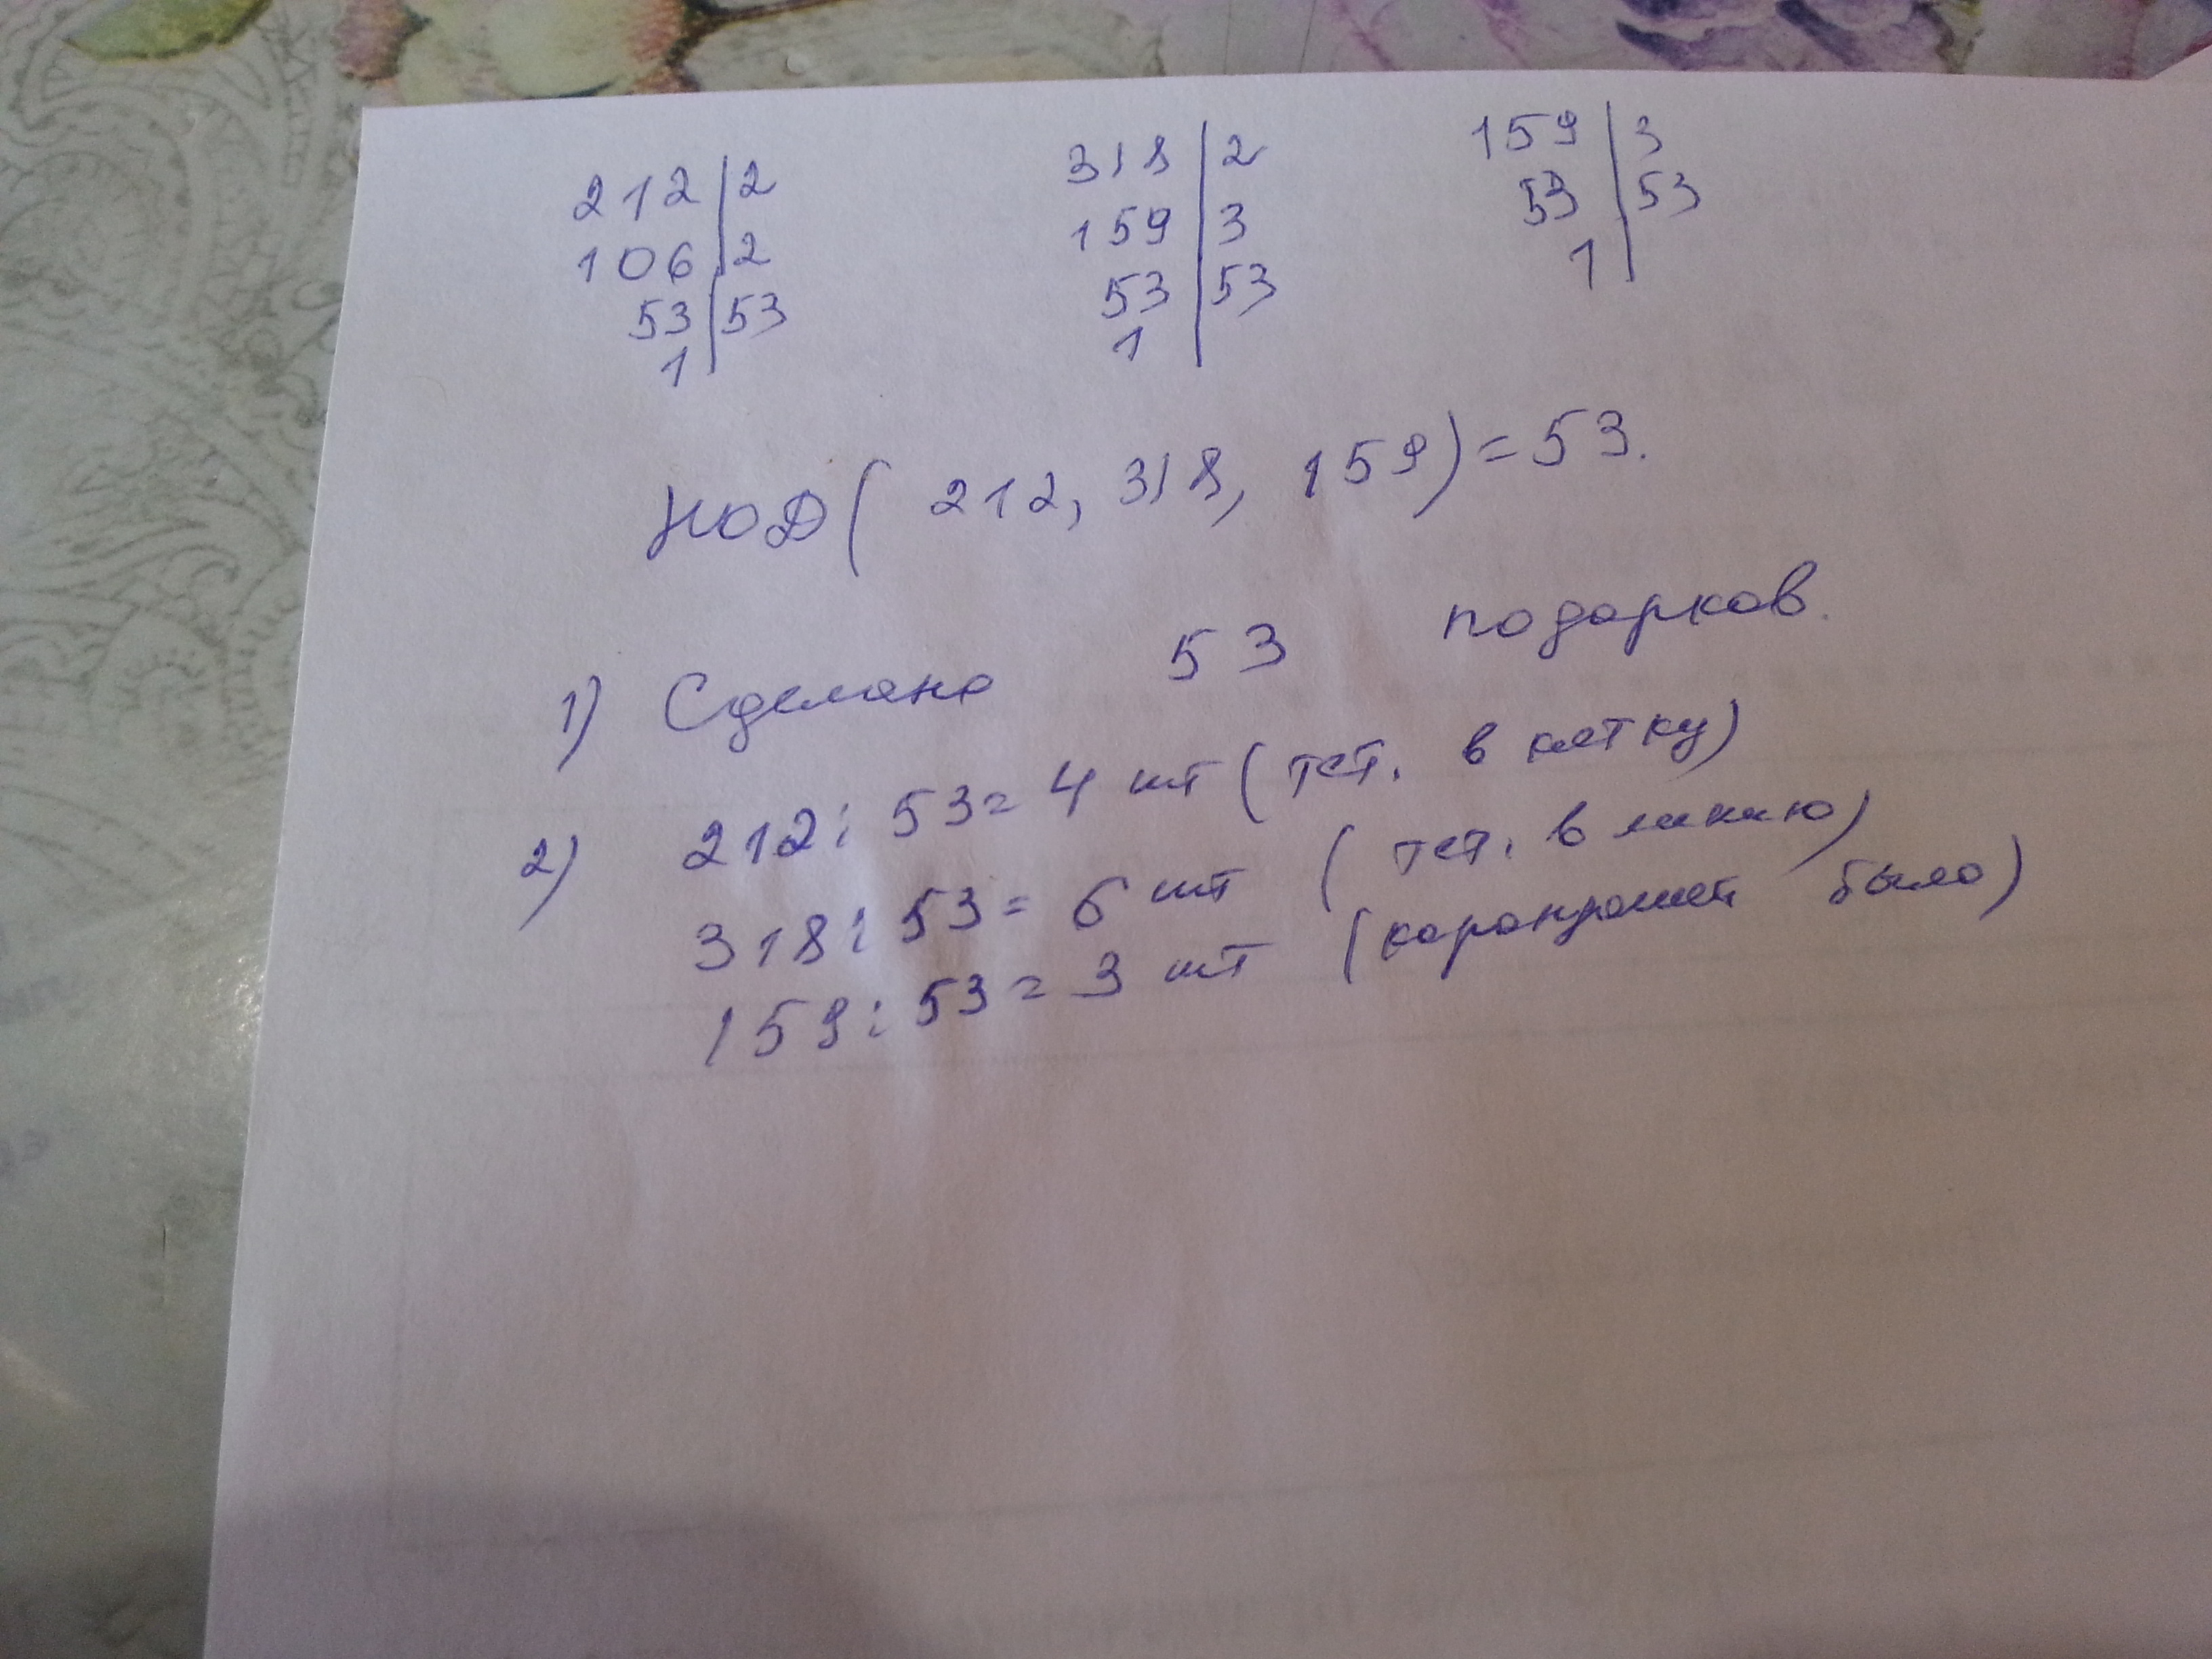 212 | 2
106 | 2
53 | 53
1
318 | 2
159 | 3
53 | 53
1
159 | 3
53 | 53
1
НОД( 212, 318, 159) = 53.
1) Сделано 53 подарков.
2) 212 : 53 = 4 шт (тет. в клетку)
318 : 53 = 6 шт (тет. в линию)
159 : 53 = 3 шт (карандашей было)